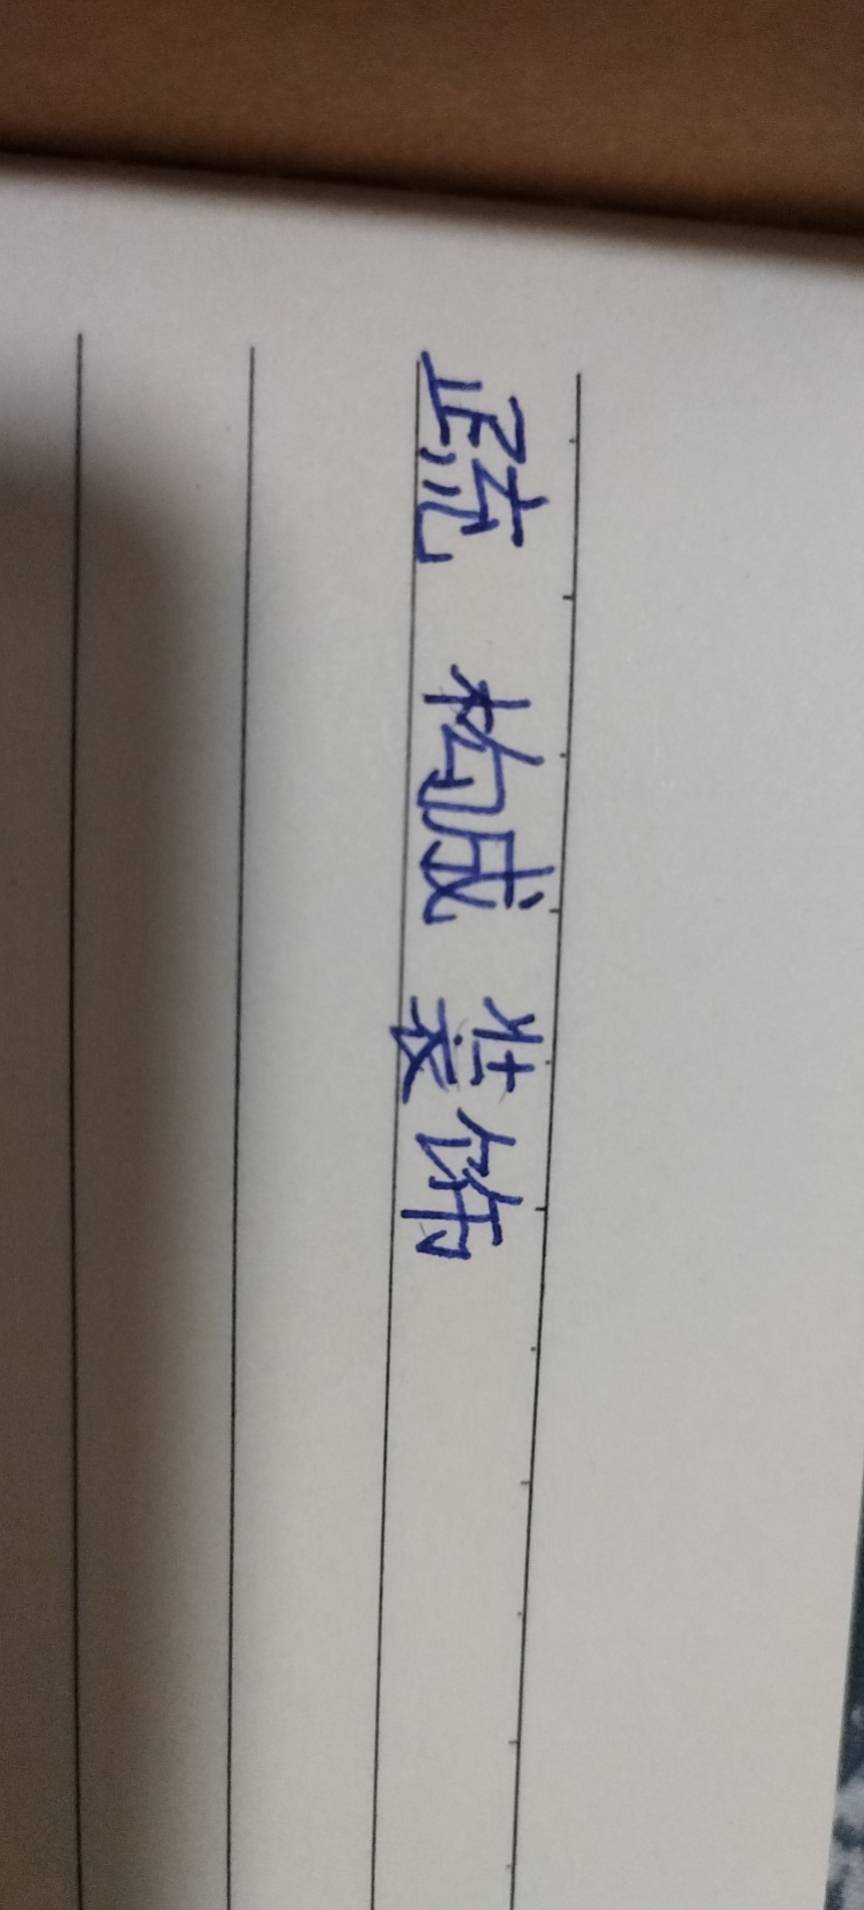 疏 构成 装饰